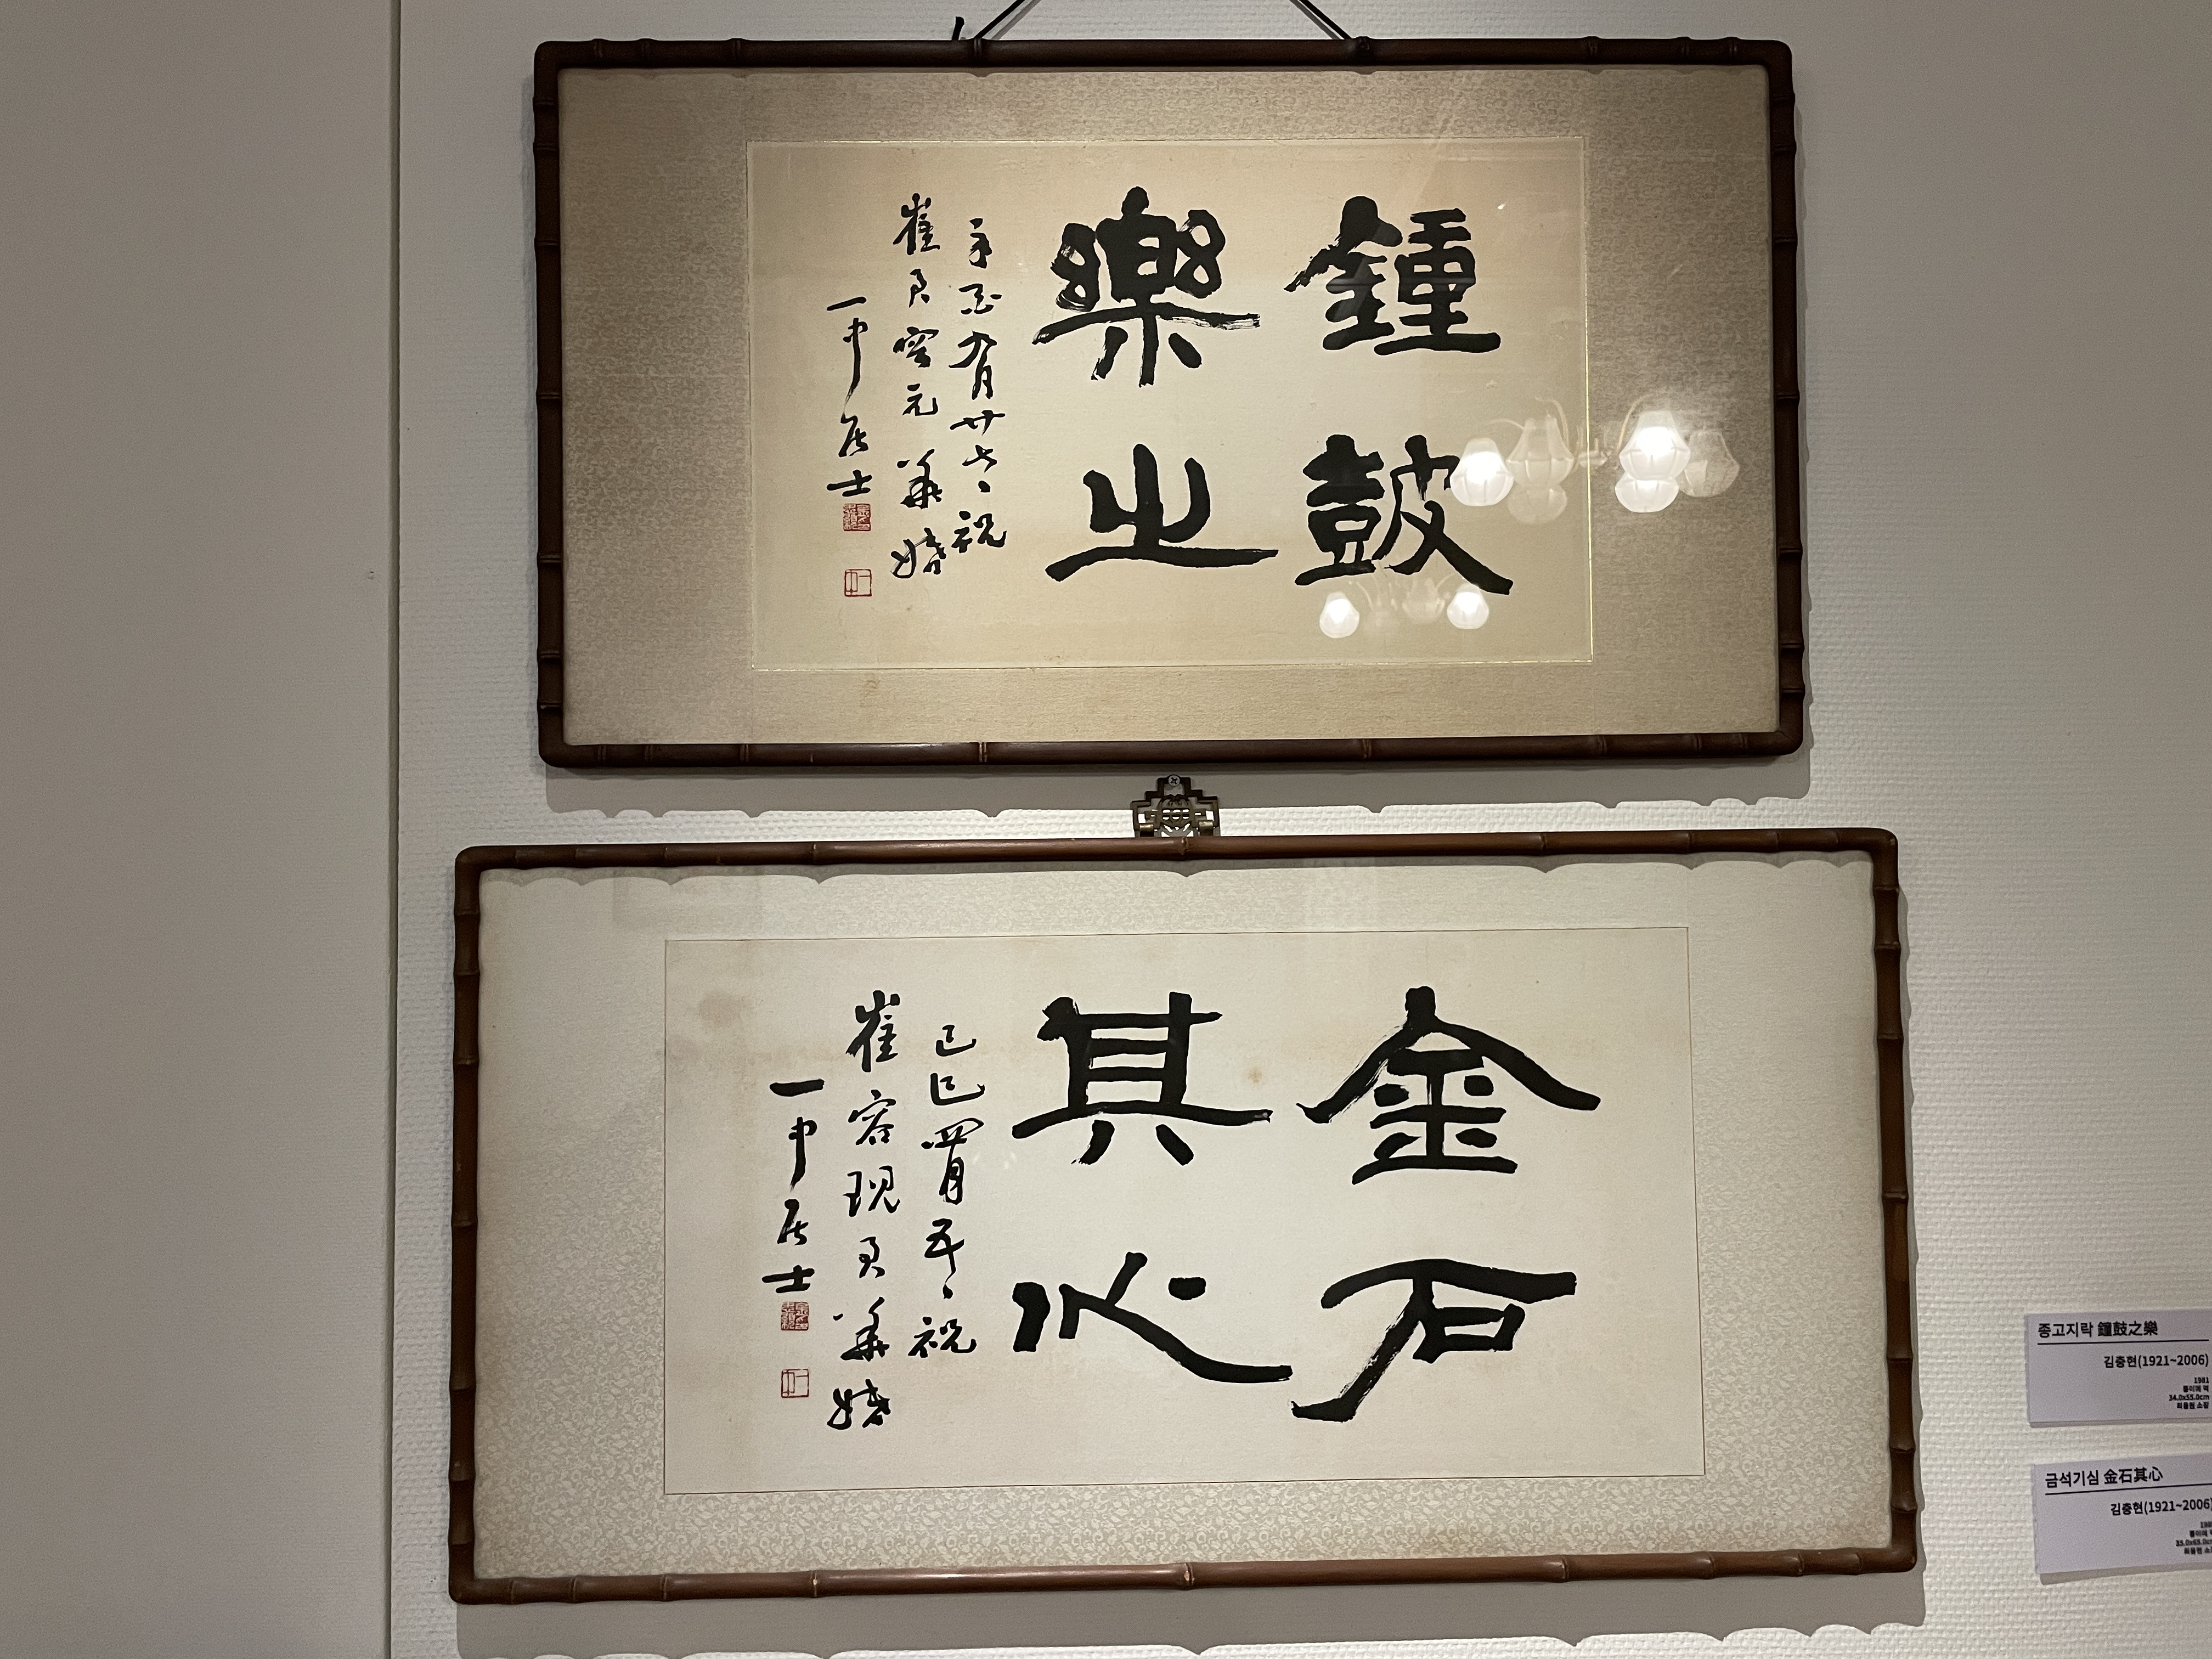 鍾鼓
樂之
辛酉九月廿六日祝
崔君容元華婚
一中居士
金石
其心
己巳四月
祝
崔容現君華婚
一中居士
종고지락 鐘鼓之樂
김충현(1921~2006)
1981
종이에 먹
34.0x55.0cm
최용원 소장
금석기심 金石其心
김충현(1921~2006)
종이에
최용현